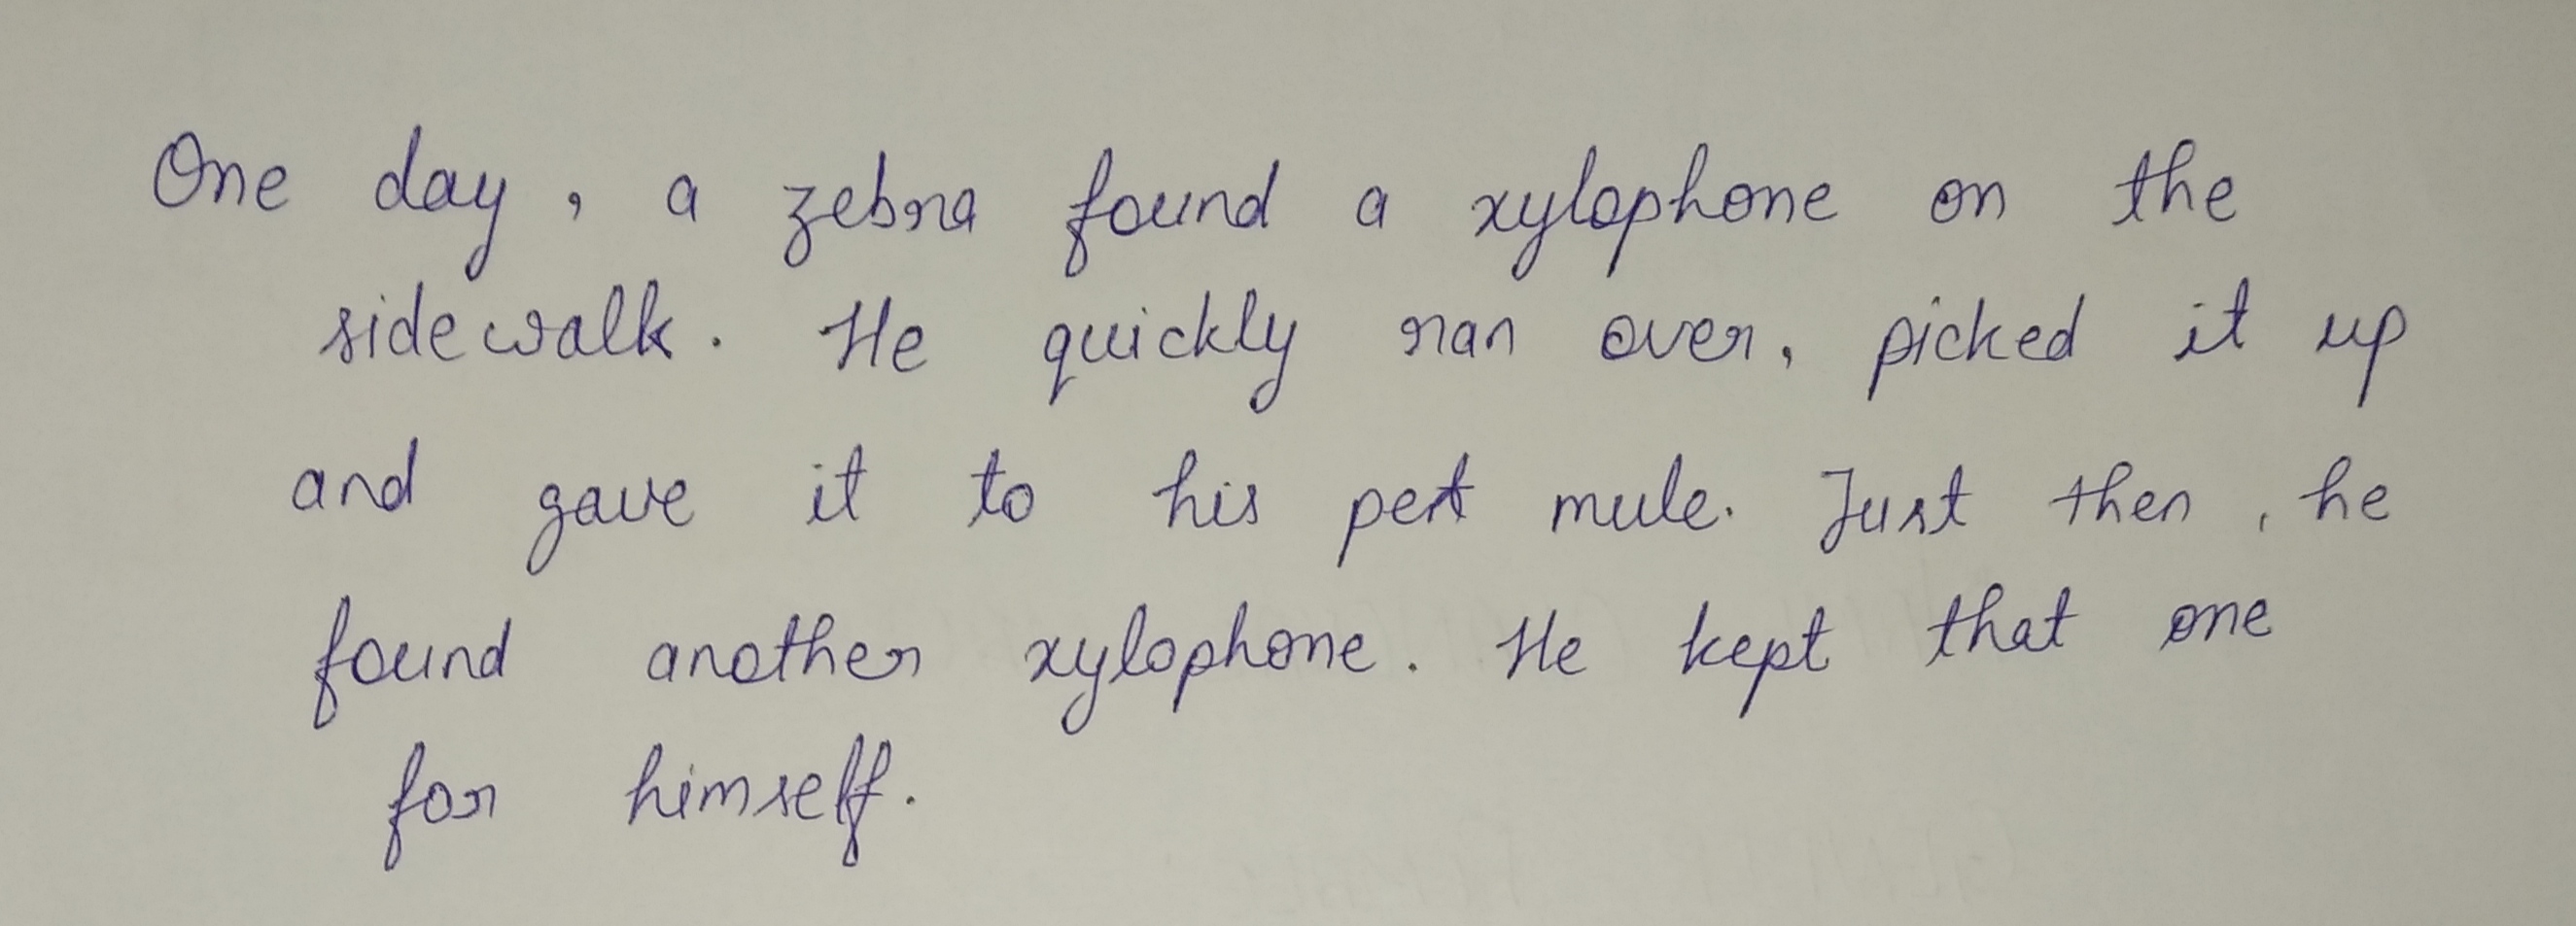 One day, a zebra found a xylophone on the
sidewalk. He quickly ran over, picked it up
and gave it to his pet mule. Just then, he
found another xylophone. He kept that one
for himself.